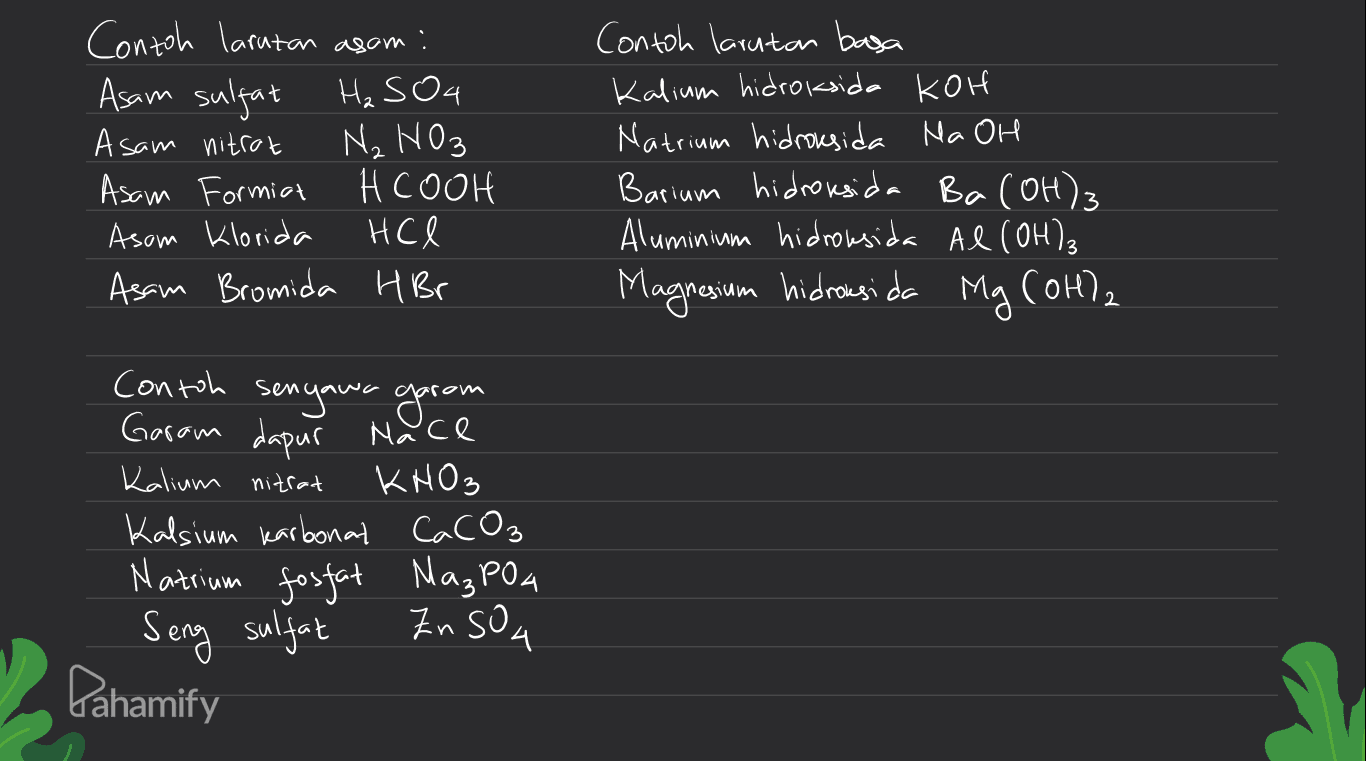 Contoh larutan asam :
Asam sulfat H₂SO₄
Asam nitrat N₂NO₃
Asam Formiat HCOOH
Asam Klorida HCl
Asam Bromida HBr
Contoh larutan basa
Kalium hidroksida KOH
Natrium hidroksida NaOH
Barium hidroksida Ba(OH)₃
Aluminium hidroksida Al(OH)₃
Magnesium hidroksida Mg(OH)₂
Contoh senyawa garam
Garam dapur NaCl
Kalium nitrat KNO₃
Kalsium karbonat CaCO₃
Natrium fosfat Na₃PO₄
Seng sulfat ZnSO₄
Pahamify